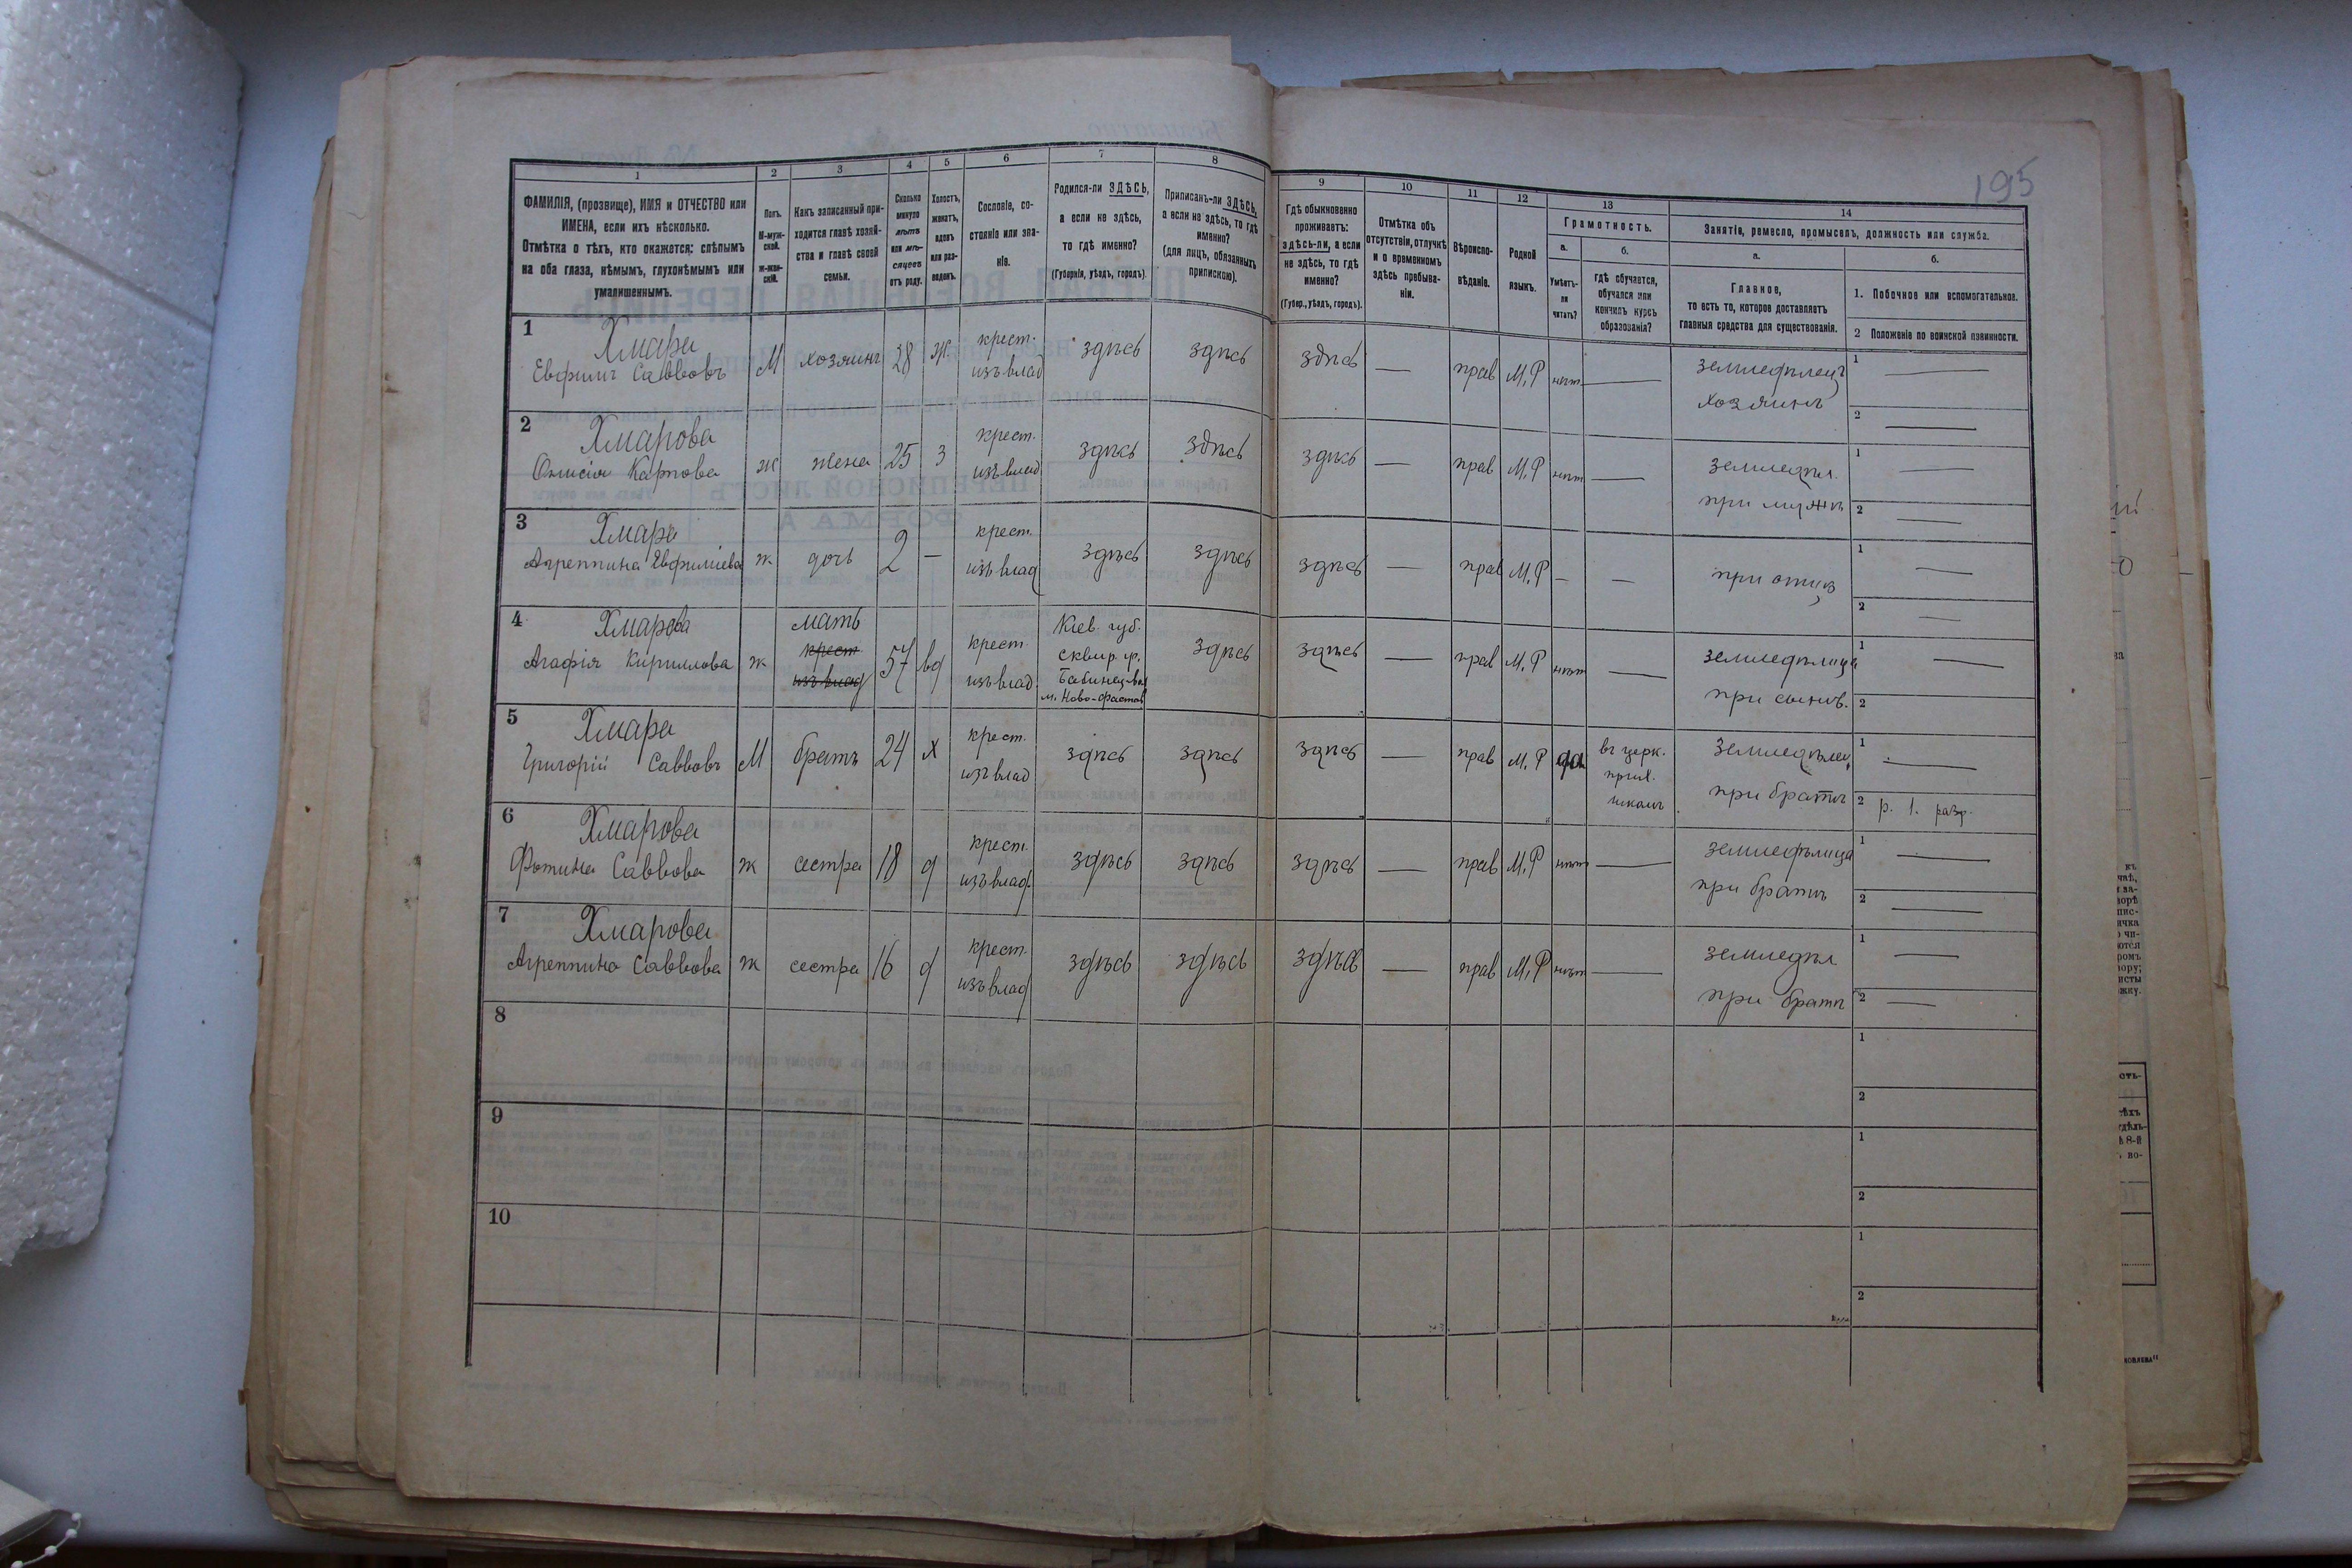 195
1
2
3
4
5
6
7
8
9
10
11
12
13
14
ФАМИЛІЯ, (прозвище), ИМЯ и ОТЧЕСТВО или
ИМЕНА, если ихъ нѣсколько.
Отмѣтка о тѣхъ, кто окажется: слѣпымъ
на оба глаза, нѣмымъ, глухонѣмымъ или
умалишеннымъ.
Полъ.
М-муж-
ской.
Ж-жен-
скій.
Какъ записанный при-
ходится главѣ хозяй-
ства и главѣ своей
семьи.
Сколько
минуло
лѣтъ
или мѣ-
сяцевъ
отъ роду.
Холостъ,
женатъ,
вдовъ
или раз-
веденъ.
Сословіе, со-
стояніе или зва-
ніе.
Родился-ли ЗДѢСЬ,
а если не здѣсь,
то гдѣ именно?
(Губернія, уѣздъ, городъ).
Приписанъ-ли ЗДѢСЬ,
а если не здѣсь, то гдѣ
именно?
(для лицъ, обязанныхъ
припискою).
Гдѣ обыкновенно
проживаетъ:
здѣсь-ли, а если
не здѣсь, то гдѣ
именно?
(Губер., уѣздъ, городъ).
Отмѣтка объ
отсутствіи, отлучкѣ
и о временномъ
здѣсь пребыва-
ніи.
Вѣроиспо-
вѣданіе.
Родной
языкъ.
Грамотность.
а.
Умѣетъ-
ли
читать?
б.
Гдѣ обучается,
обучался или
кончилъ курсъ
образованія?
Занятіе, ремесло, промыселъ, должность или служба.
а.
Главное,
то есть то, которое доставляетъ
главныя средства для существованія.
б.
1. Побочное или вспомогательное.
2 Положеніе по воинской повинности.
1
Хмара
Евфимъ Савовъ М хозяинъ 28 ж. крест. изъ влад здѣсь здѣсь здѣсь — прав М.Р нѣт — земледѣлецъ
хозяинъ
1 —
2 —
2
Хмарова
Онисія Карпова ж жена 25 з крест. изъ влад здѣсь здѣсь здѣсь — прав М.Р нѣт — земледѣл.
при мужѣ
1 —
2 —
3
Хмара
Агреппина Евфиміева ж дочь 2 — крест. изъ влад здѣсь здѣсь здѣсь — прав М.Р — — при отцѣ
1 —
2 —
4
Хмарова
Агафія Кириллова ж мать 57 вд крест изъ влад.
крест
изъ влад
Кіев. губ.
сквир. у.
м. Ново-Фастов
здѣсь здѣсь — прав М.Р нѣт — земледѣлица
при сынѣ.
1 —
2
5
Хмара
Григорій Саввовъ М братъ 24 х крест. изъ влад здѣсь здѣсь здѣсь — прав М.Р да
въ церк.
прих.
школѣ
земледѣлец
при братѣ
1 —
2 р. 1. разр.
6
Хмарова
Фотина Саввова ж сестра 18 д крест. изъ влад. здѣсь здѣсь здѣсь — прав М.Р нѣт — земледѣлица
при братѣ
1 —
2 —
7
Хмарова
Агреппина Саввова ж сестра 16 д крест. изъ влад здѣсь здѣсь здѣсь — прав М.Р нѣт — земледѣл
при братѣ
1 —
2 —
8
1
2
9
1
2
10
1
2